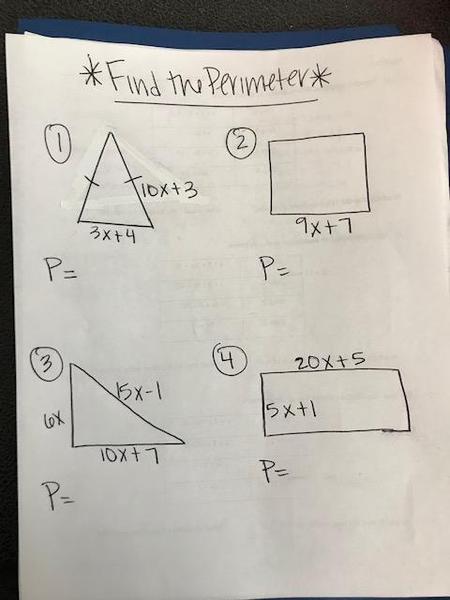 *Find the Perimeter*
① 10x+3
3x+4
P=
② 9x+7
P=
③ 15x-1
6x
10x+7
P=
④ 20x+5
5x+1
P=